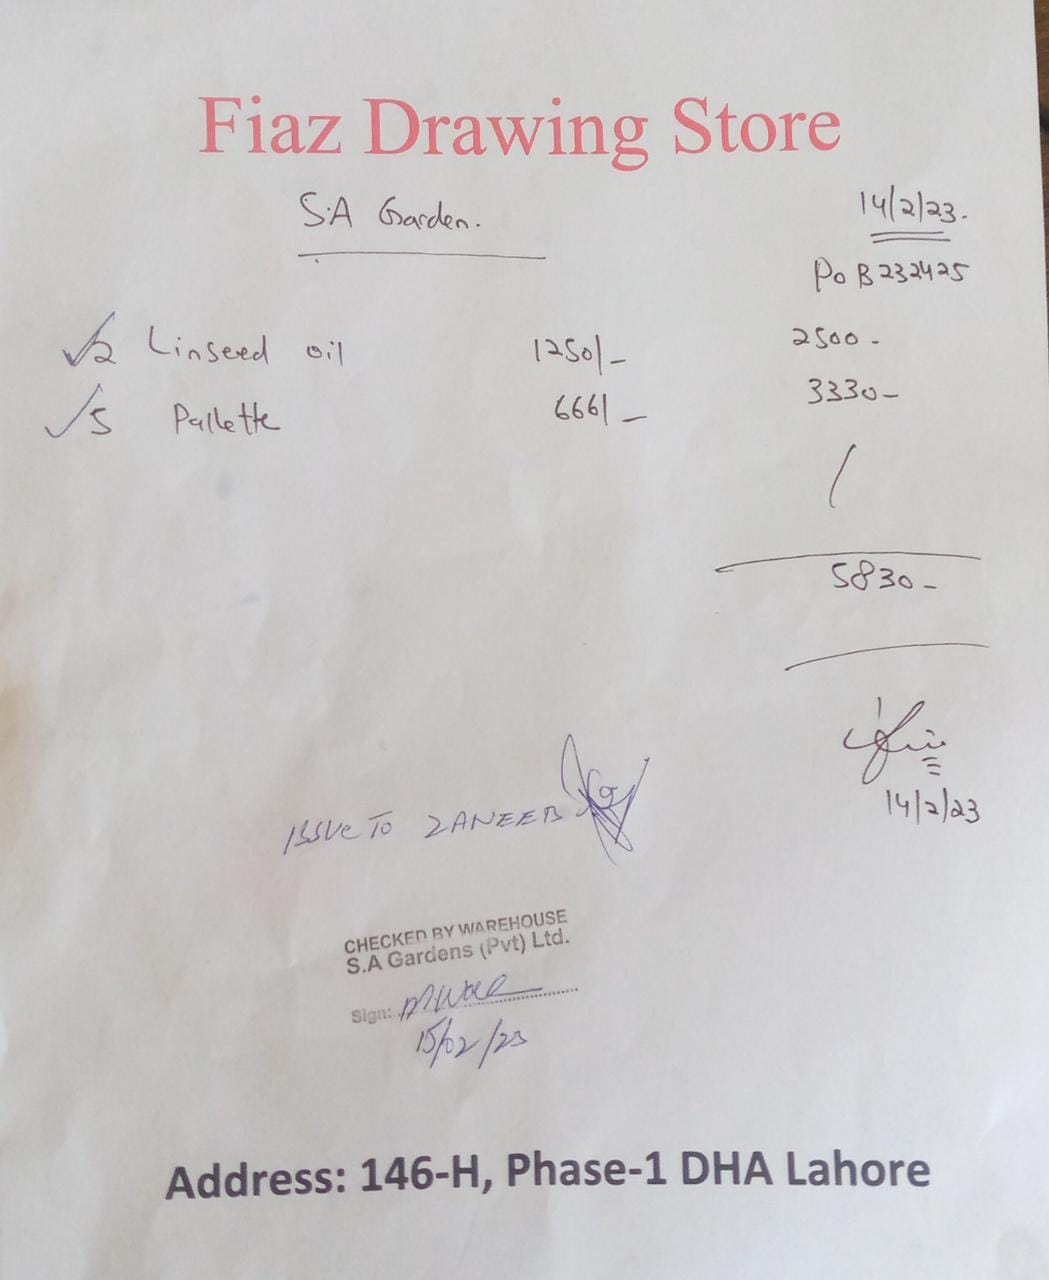 Fiaz Drawing Store
S.A Garden.
14/2/23.
Po B232425
2 Linseed oil 1250/- 2500-
5 Pallette 666/- 3330-
5830-
14/2/23
ISSUE TO ZANEEB
CHECKED BY WAREHOUSE
S.A Gardens (Pvt) Ltd.
Sign:
15/02/23
Address: 146-H, Phase-1 DHA Lahore